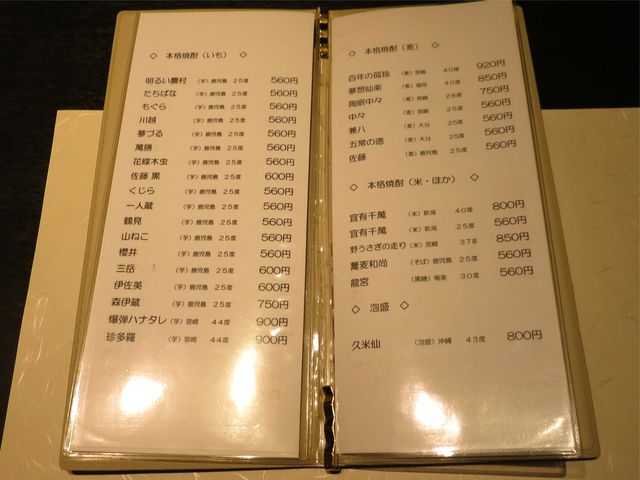 ◇ 本格焼酎（いも） ◇
明るい農村 （芋）鹿児島 25度 560円
たちばな （芋）鹿児島 25度 560円
もぐら （芋）鹿児島 25度 560円
川越 （芋）鹿児島 25度 560円
夢づる （芋）鹿児島 25度 560円
萬膳 （芋）鹿児島 25度 560円
花蝶木虫 （芋）鹿児島 25度 560円
佐藤 黒 （芋）鹿児島 25度 600円
くじら （芋）鹿児島 25度 560円
一人蔵 （芋）鹿児島 25度 560円
鶴見 （芋）鹿児島 25度 560円
山ねこ （芋）鹿児島 25度 560円
櫻井 （芋）鹿児島 25度 560円
三岳 （芋）鹿児島 25度 600円
伊佐美 （芋）鹿児島 25度 600円
森伊蔵 （芋）鹿児島 25度 750円
爆弾ハナタレ （芋）宮崎 44度 900円
珍多羅 （芋）宮崎 44度 900円
◇ 本格焼酎（麦） ◇
百年の孤独 （麦）宮崎 40度 920円
夢想仙楽 （麦） 40度 850円
陶眠中々 （麦）宮崎 28度 750円
中々 （麦）宮崎 25度 560円
兼八 （麦）大分 25度 560円
五常の徳 （麦）大分 25度 560円
佐藤 （麦）鹿児島 25度 560円
◇ 本格焼酎（米・ほか） ◇
宜有千萬 （米）新潟 40度 800円
宜有千萬 （米）新潟 25度 560円
野うさぎの走り （米）宮崎 37度 850円
蕎麦和尚 （そば）鹿児島 25度 560円
龍宮 （黒糖）奄美 30度 560円
◇ 泡盛 ◇
久米仙 （泡盛）沖縄 43度 800円